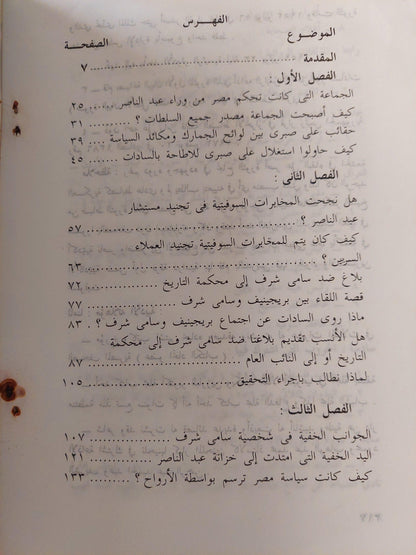 الفهرس
الموضوع الصفحة
المقدمة .......... ٧
الفصل الأول :
الجماعة التى كانت تحكم مصر من وراء عبد الناصر .... ٢٥
كيف أصبحت الجماعة مصدر جميع السلطات ؟ ........ ٣١
حقائب على صبرى بين لوائح الجمارك ومكائد السياسة .. ٣٩
كيف حاولوا استغلال على صبرى للاطاحة بالسادات .... ٤٥
الفصل الثانى :
هل نجحت المخابرات السوفيتية فى تجنيد مستشار
عبد الناصر ؟ .......... ٥٧
كيف كان يتم للمخابرات السوفيتية تجنيد العملاء
السريين ؟ .......... ٦٣
بلاغ ضد سامى شرف إلى محكمة التاريخ .......... ٧٢
قصة اللقاء بين بريجينيف وسامى شرف .......... ٧٧
ماذا روى السادات عن اجتماع بريجينيف وسامى شرف ؟ . ٨٣
هل الأنسب تقديم بلاغنا ضد سامى شرف إلى محكمة
التاريخ أو إلى النائب العام .......... ٨٧
لماذا نطالب باجراء التحقيق .......... ١٠٥
الفصل الثالث :
الجوانب الخفية فى شخصية سامى شرف .......... ١٠٧
اليد الخفية التى امتدت إلى خزانة عبد الناصر ........ ١٢١
كيف كانت سياسة مصر ترسم بواسطة الأرواح ؟ ........ ١٣٣